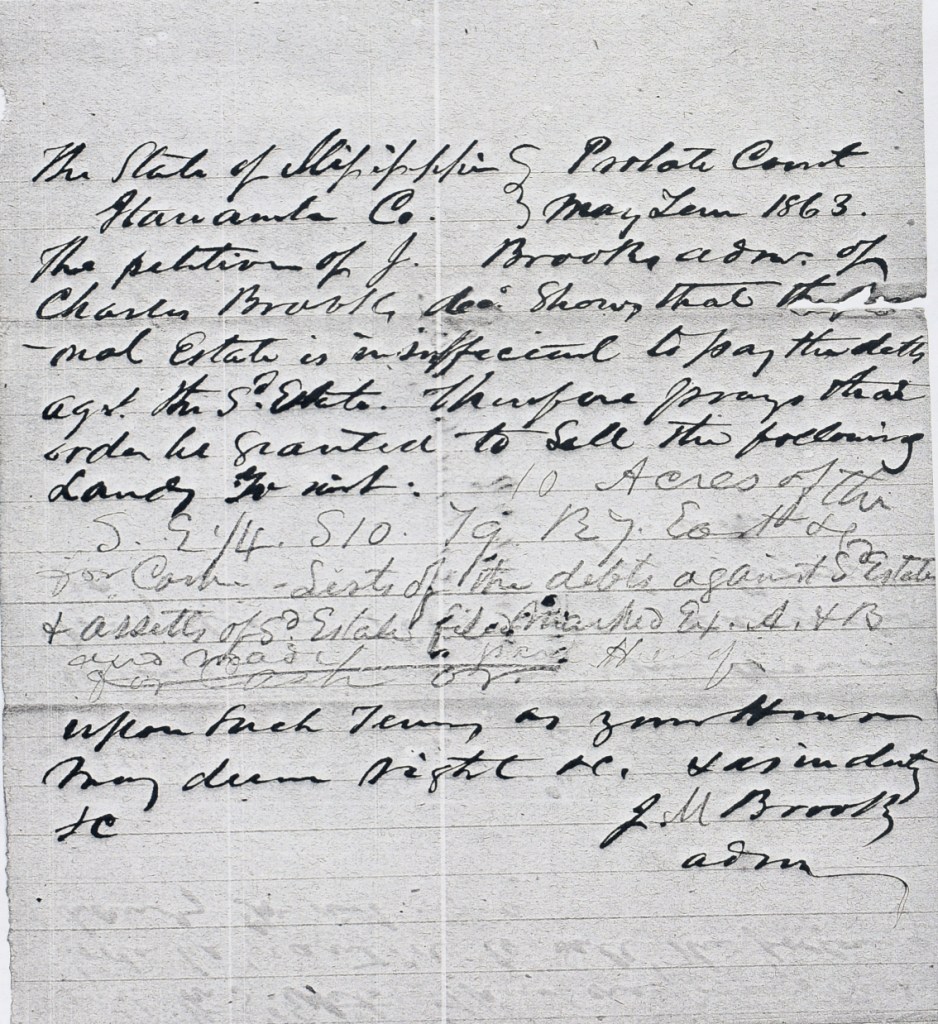 The State of Mississippi } Probate Court
Itawamba Co. } May Term 1863.
The petition of J. Brooks, admr. of
Charles Brooks, decd. Shows, that the Per
-nal Estate is insufficient to pay the debts
agst. the Sd. Estate. Therefore prays that
order be granted to Sell the following
Lands To wit: 10 Acres of the
S. E 1/4. S10. T9 R7. East &c
for Com - Lists of the debts against Sd Estate
& assetts of Sd. Estate filed Marked Ex. A. & B
and made a part Hereof
for Cash or
upon Such Terms, as your Honor
May deem right &c. & as in duty
&c
J. M Brooks
admr